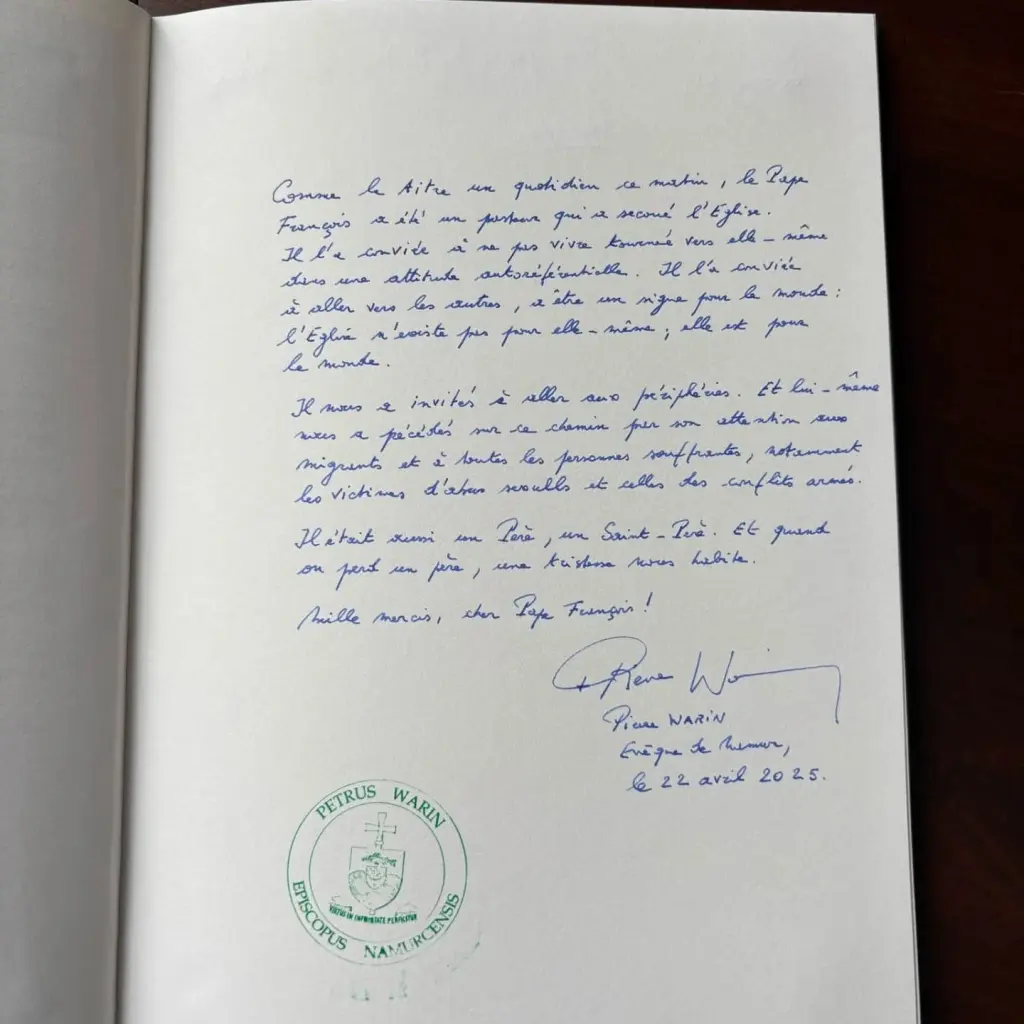 Comme le titre un quotidien ce matin, le Pape
François a été un pasteur qui a secoué l'Eglise.
Il l'a conviée à ne pas vivre tournée vers elle-même
dans une attitude autoréférentielle. Il l'a conviée
à aller vers les autres, à être un signe pour le monde :
l'Eglise n'existe pas pour elle-même ; elle est pour
le monde.
Il nous a invités à aller aux périphéries. Et lui-même
nous a précédés sur ce chemin par son attention aux
migrants et à toutes les personnes souffrantes, notamment
les victimes d'abus sexuels et celles des conflits armés.
Il était aussi un Père, un Saint-Père. Et quand
on perd un père, une tristesse nous habite.
Mille mercis, cher Pape François !
Pierre Warin
Pierre WARIN
Evêque de Namur,
le 22 avril 2025.
PETRUS WARIN
VIRTUS IN INFIRMITATE PERFICITUR
EPISCOPUS NAMURCENSIS